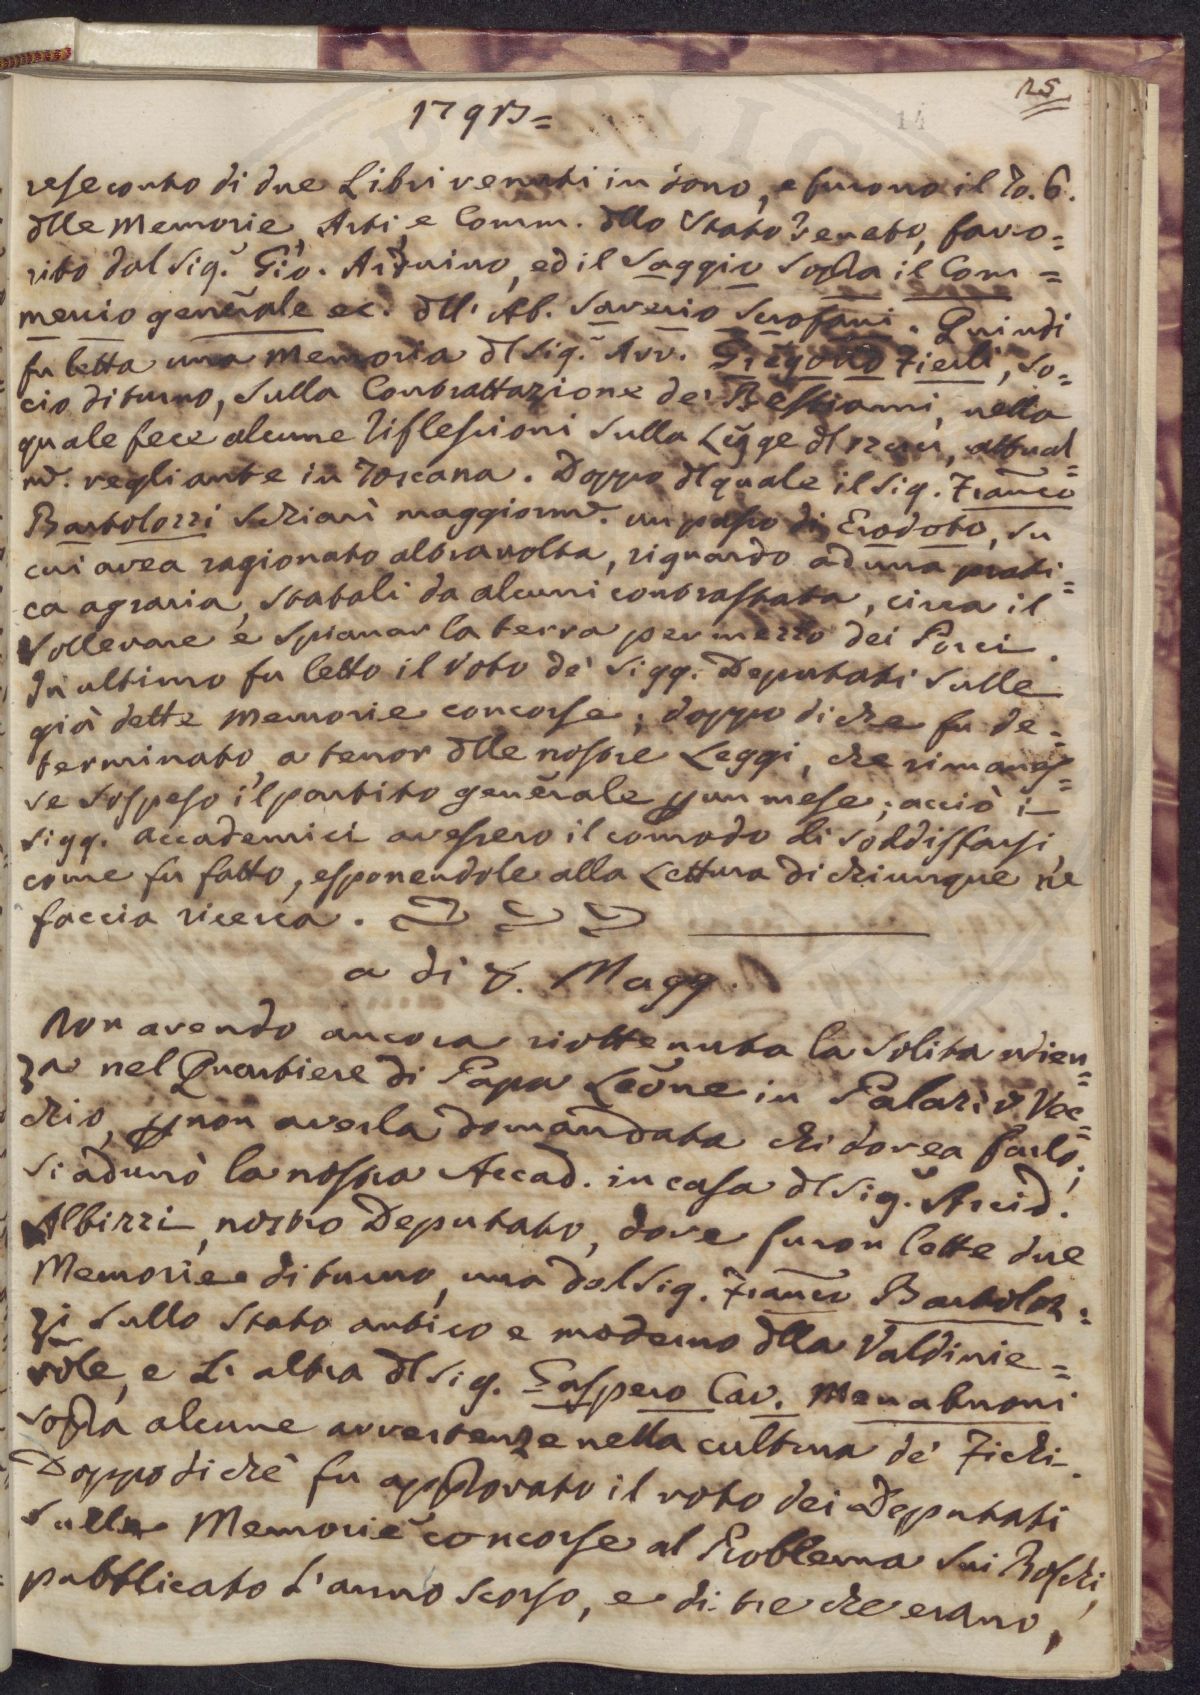 25
14
1793=
rese conto di due Libri venuti in dono, e furono il To. 6.
dlle Memorie, Arti, e Comm. dllo Stato Veneto, favo=
rito dal Sig.r Gio. Arduino, ed il Saggio sopra il Com=
mercio generale ec. dll' Ab. Saverio Scrofani. Quindi
fu letta una Memoria dl Sig.r Avv. Gregorio Fierli, So=
cio di turno, sulla Contrattazione de' Bestiami, nella
quale fece alcune riflessioni sulla Legge dl, attual=
m.e vegliante in Toscana. Doppo dl quale il Sig. Franco
Bartolozzi schiarì maggiorm.e un passo di Erodoto, su
cui avea ragionato altra volta, riguardo ad una prati=
ca agraria, statali da alcuni contrastata, circa il
sollevare e spianar la terra per mezzo dei Porci.
In ultimo fu letto il Voto de' Sigg. Deputati sulle
già dette Memorie concorse; doppo di che fu de=
terminato, a tenor dlle nostre Leggi, che rimanes=
se sospeso il partito generale p un mese; acciò i
Sigg. Accademici avessero il comodo di soddisfarsi
come fu fatto, esponendole alla Lettura di chiunque ne
faccia ricerca.
a dì 8. Magg.
Non avendo ancora riottenuta la solita udien=
za nel Quartiere di Papa Leone in Palazzo Vec=
chio, p non averla domandata chi dovea farlo;
si adunò la nostra Accad. in casa dl Sig.r Arcid.
Albizzi, nostro Deputato, dove furon lette due
Memorie di turno, una dal Sig. Franco Bartoloz=
zi sullo Stato antico e moderno dlla Valdinie=
vole, e l'altra dl Sig. Gaspero Cav. Menabuoni
sopra alcune avvertenze nella cultura de' Fichi.
Doppo di chè fu approvato il voto dei Deputati
sulle Memorie concorse al Problema sui Boschi,
pubblicato l'anno scorso, e di tre che erano,